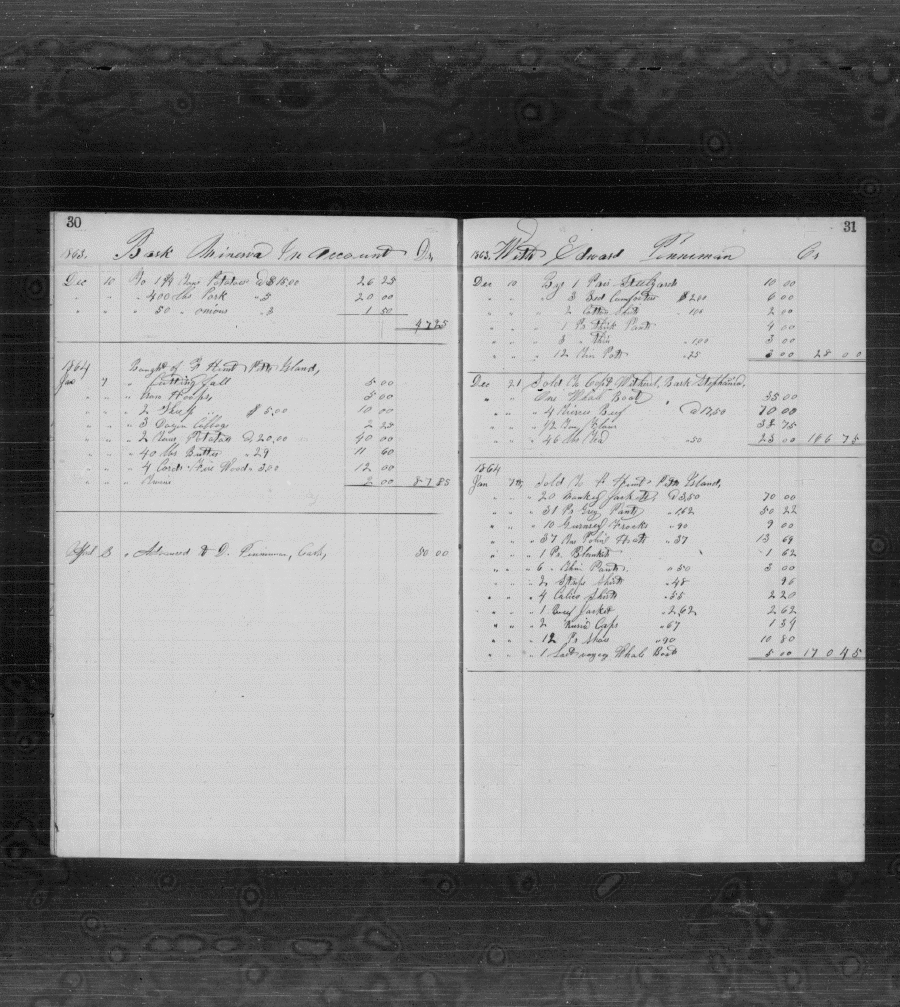 30
1863. Bark Minerva In Account Dr,
Dec 10 To 1 3/4 Tuns Potatoes @ $15,00 26 25
" " " 400 lbs Pork " 5 20 00
" " " 50 " onions " 3 1 50
47 25
1864 Bought of F Hunt Pitts Island,
Jan 7 " Cutting Fall 5 00
" " " Iron Hoops, 5 00
" " " 2 Sheep $ 5,00 10 00
" " " 3 Dozen Cabbage 2 25
" " " 2 Tuns Potatoes @ 20,00 40 00
" " " 40 lbs Butter " 29 11 60
" " " 4 Cords Fire Wood " 3 00 12 00
" " " 2 00 87 85
April " Advanced to D. Penniman, Cash, 50 00
31
1863. With Edward Penniman Cr
Dec 10 By 1 Pair Steelyards 10 00
" " " 3 Bed Comforters $ 2 00 6 00
" " " 2 Cotton Shirts " 1 00 2 00
" " " 1 Pr Thick Pants 4 00
" " " 3 " Thin " 1 00 3 00
" " " 12 Tin Pots " 25 3 00 28 00
Dec 21 Sold To Capt Bark Stephania,
" " One Whale Boat 55 00
" " " 4 Tierces Beef @ 17,50 70 00
" " " 38 75
" " " 46 lbs Tea " 50 23 00 186 75
1864
Jan 7th, Sold To F Hunt Pitts Island,
" " " 20 Monkey Jackets @ 3,50 70 00
" " " 31 Pr Grey Pants " 1,62 50 22
" " " 10 Gurnsey Frocks " 90 9 00
" " " 37 " 37 13 69
" " " 1 Pr. Blankets 1 62
" " " 6 " Thin Pants " 50 3 00
" " " 2 Stripe Shirts " 48 96
" " " 4 Calico Shirts " 55 2 20
" " " 1 Jacket " 2,62 2 62
" " " 2 Caps " 67 1 34
" " " 12 Pr Shoes " 90 10 80
" " " 1 Whale Boat 5 00 170 45